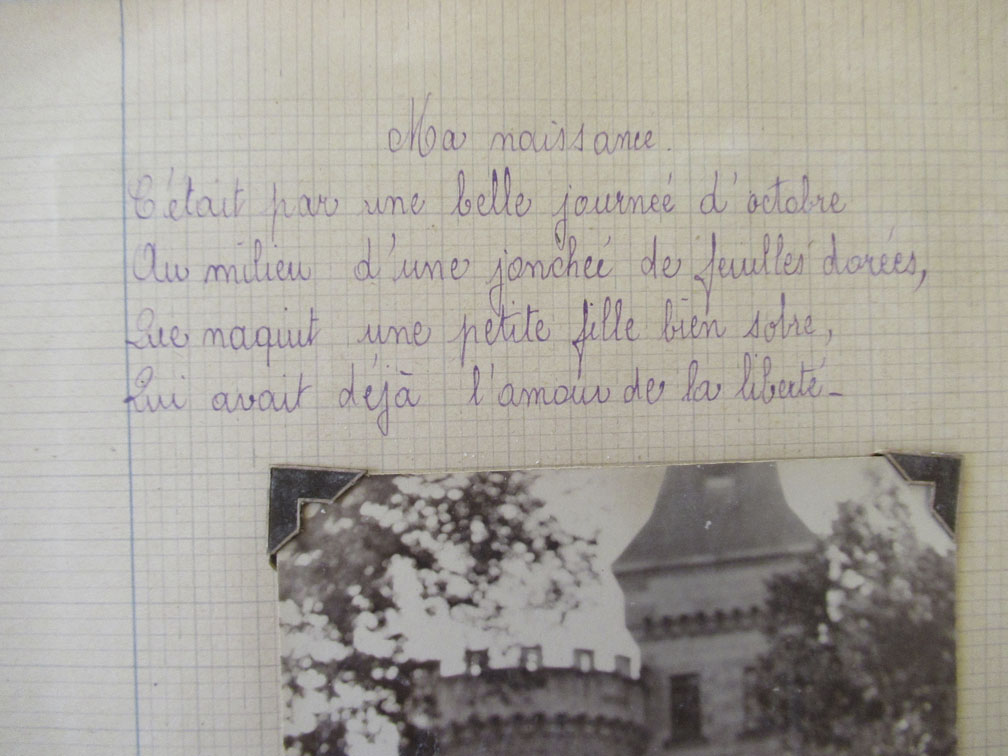 Ma naissance.
C'était par une belle journée d'octobre
Au milieu d'une jonchée de feuilles dorées,
Que naquit une petite fille bien sobre,
Qui avait déjà l'amour de la liberté_